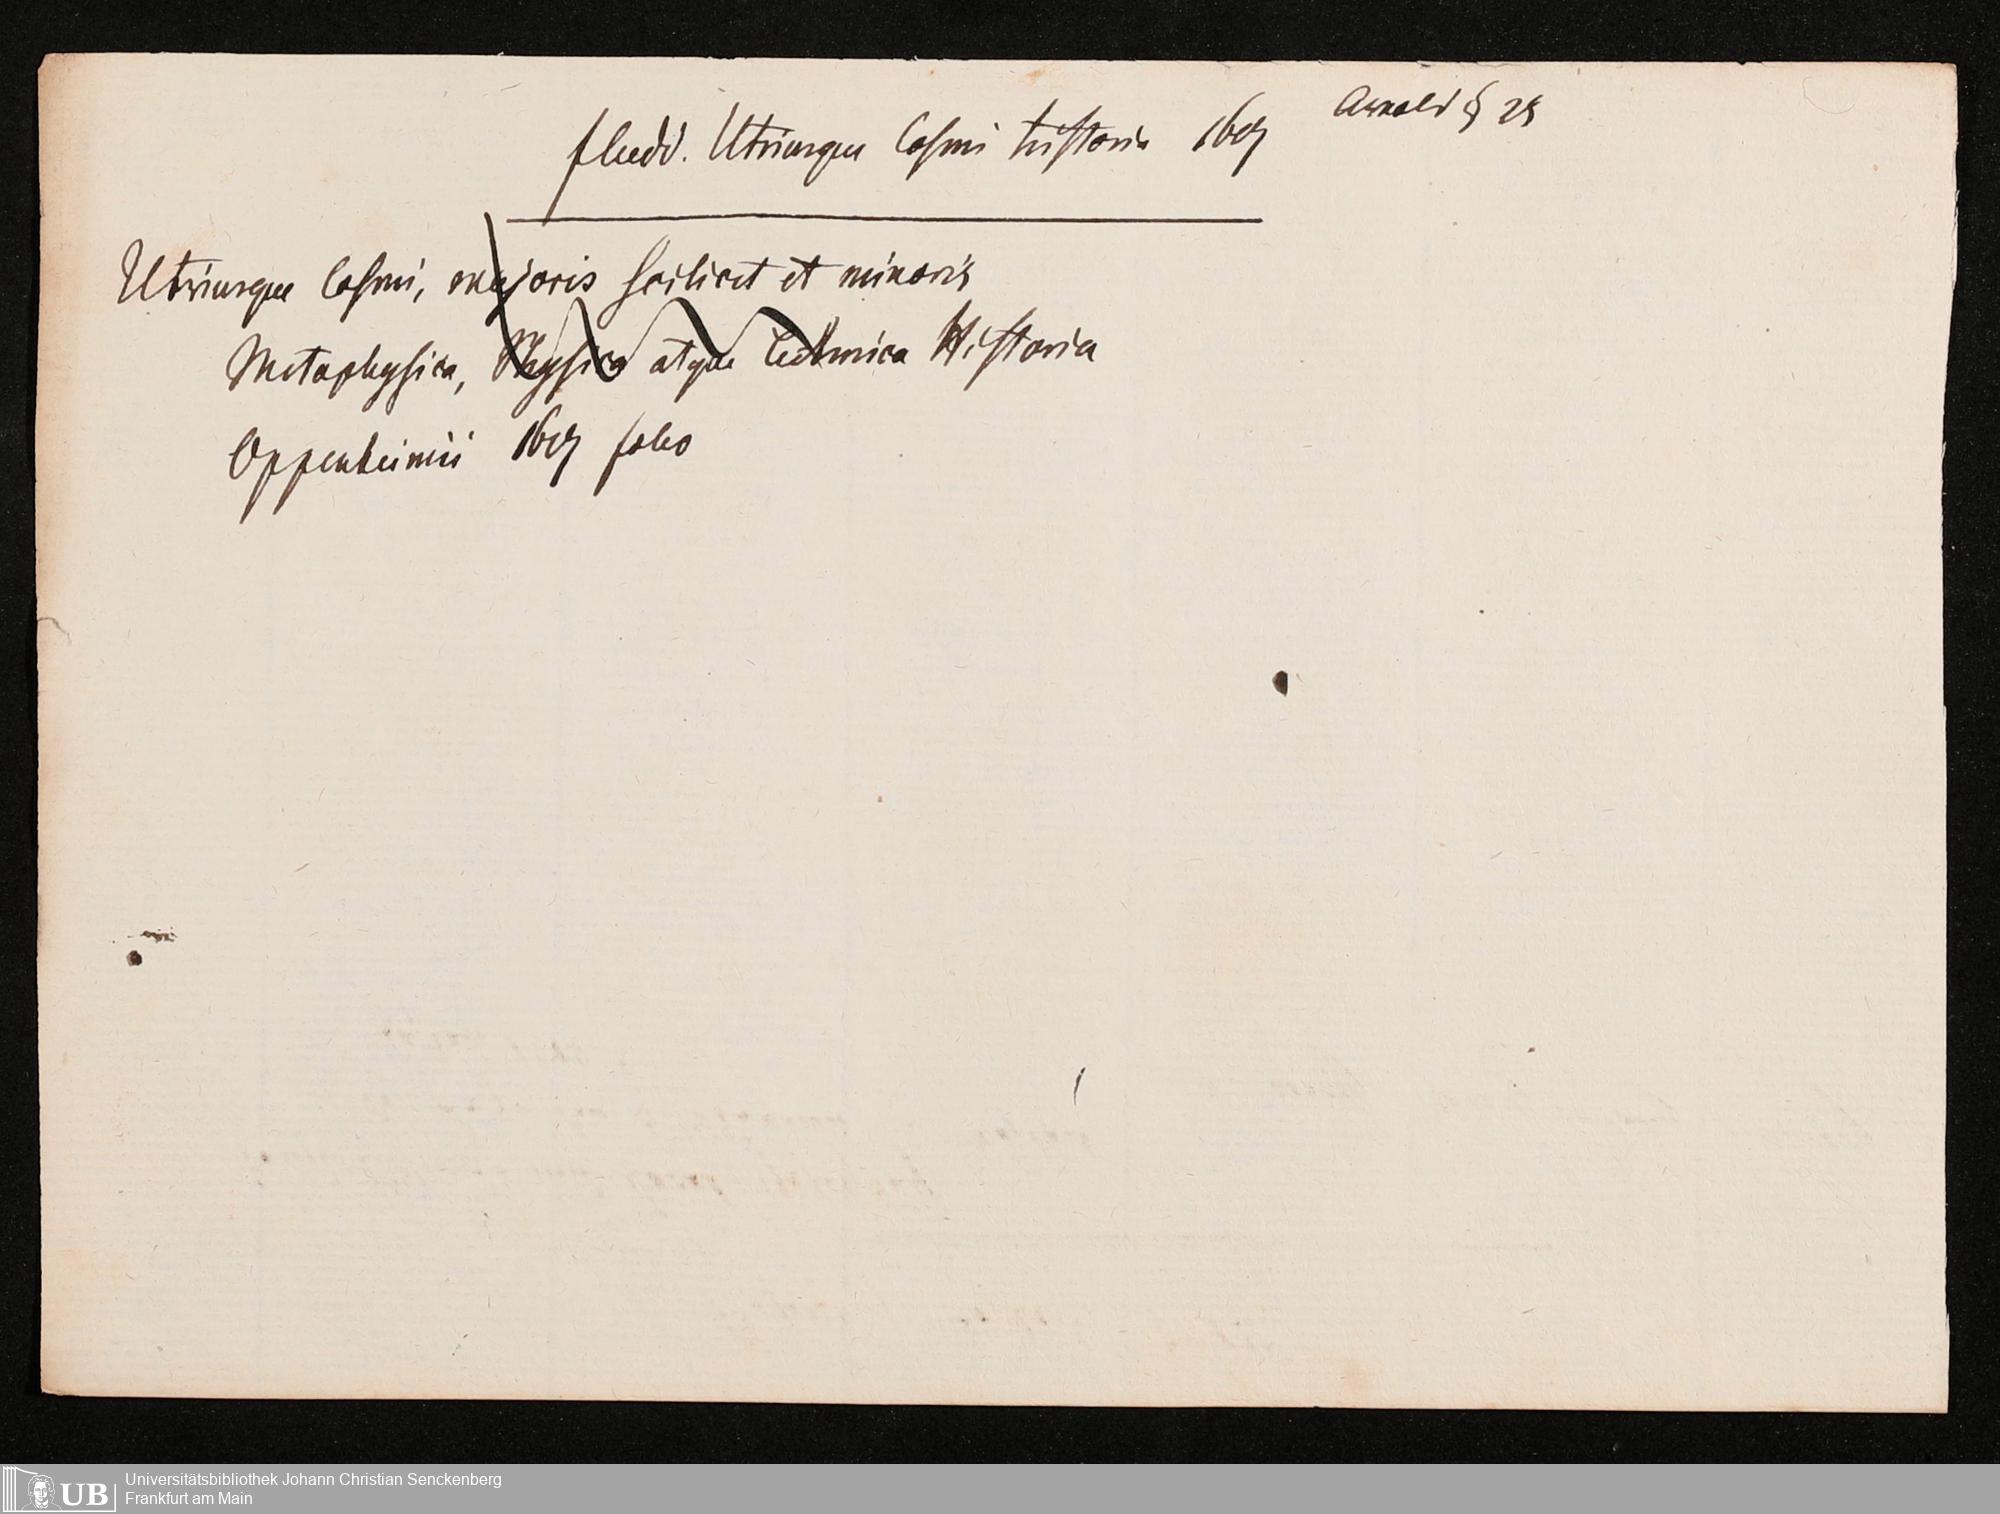 Fludd. Utriusque Cosmi historia 1617 Arnold § 25
Utriusque Cosmi, majoris scilicet et minoris
Metaphysica, Physica atque Technica Historia
Oppenheimii 1617 folio
UB Universitätsbibliothek Johann Christian Senckenberg
Frankfurt am Main